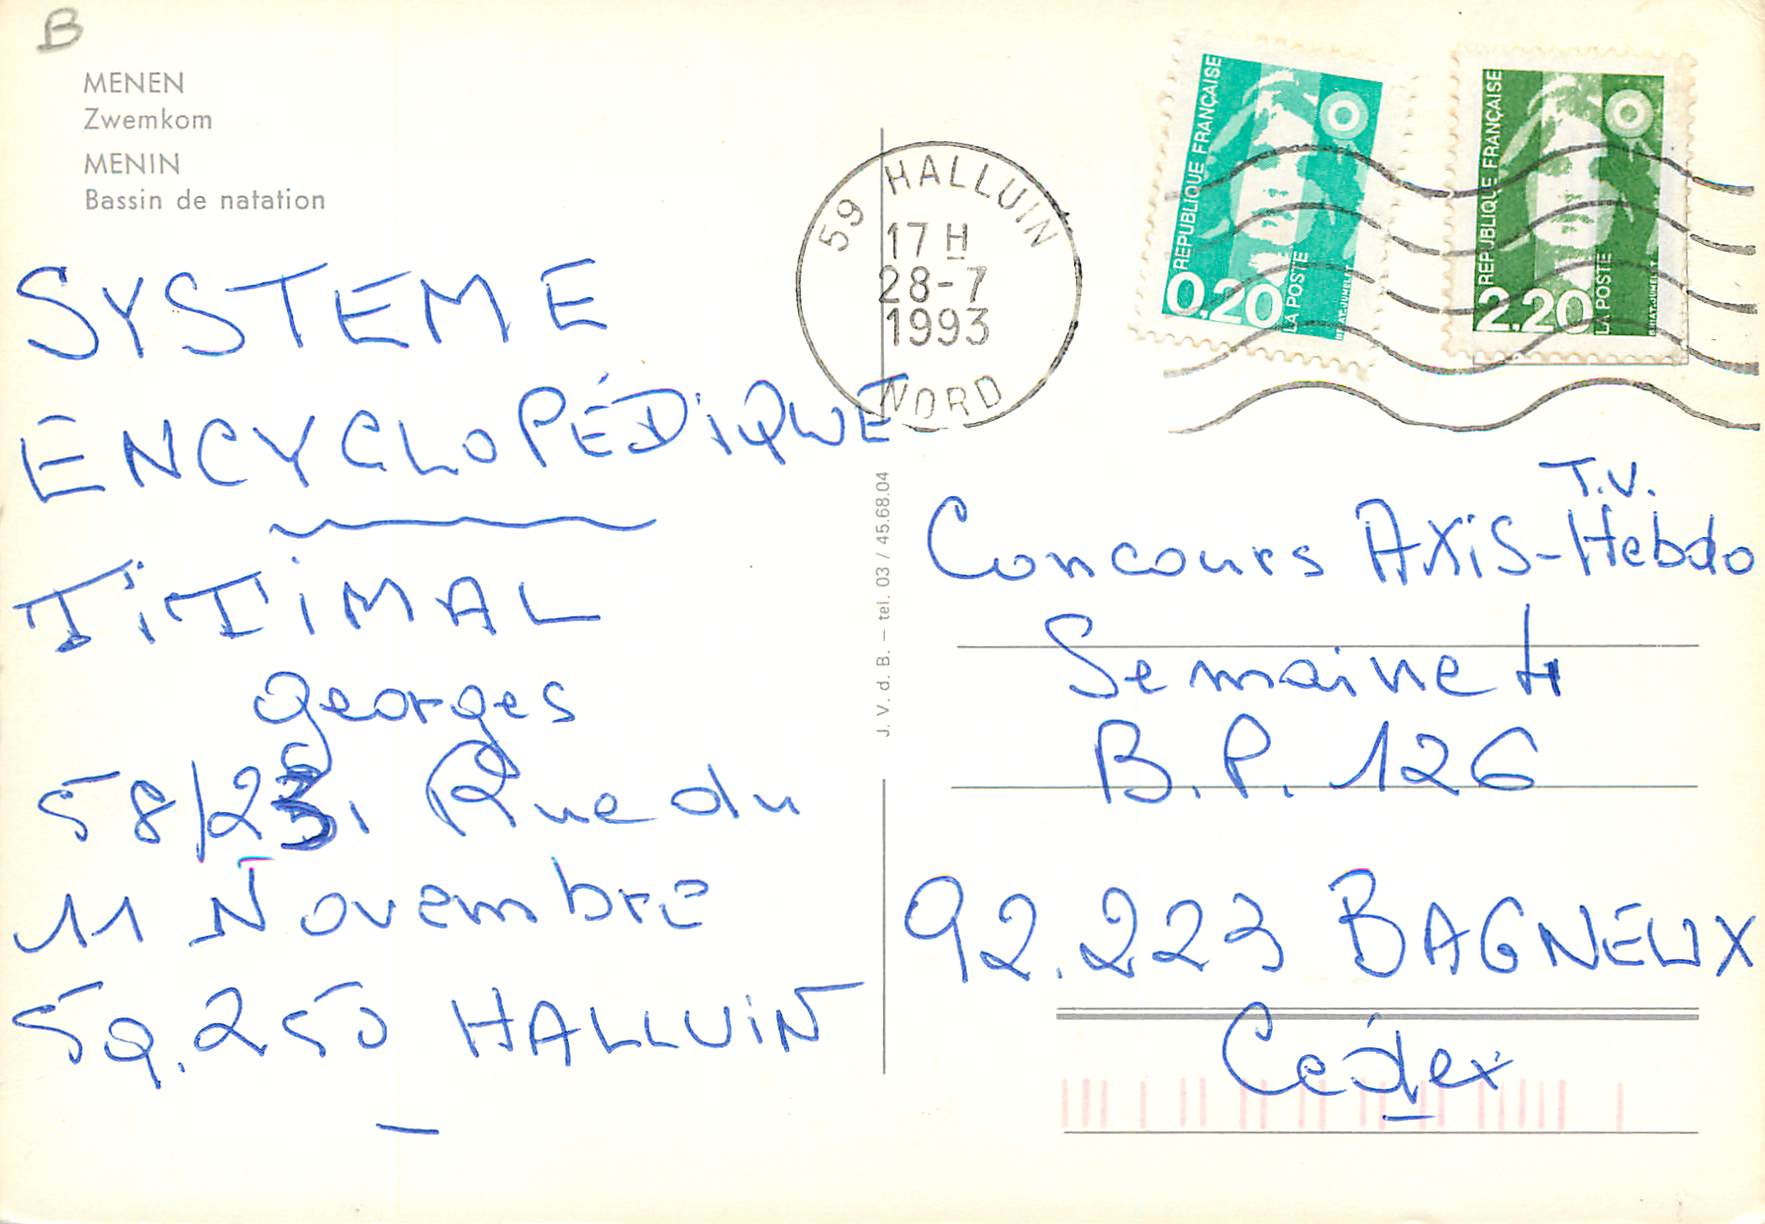 B
MENEN
Zwemkom
MENIN
Bassin de natation
59 HALLUIN
17 H
28-7
1993
NORD
REPUBLIQUE FRANÇAISE
0,20
LA POSTE
REPUBLIQUE FRANÇAISE
2,20
LA POSTE
SYSTEME
ENCYCLOPÉDIQUE
TITIMAL
Georges
58/23, Rue du
11 Novembre
59.250 HALLUIN
J. V. d. B. – tel. 03 / 45.68.04
T.V.
Concours AXIS-Hebdo
Semaine 4
B.P. 126
92.223 BAGNEUX
Cedex